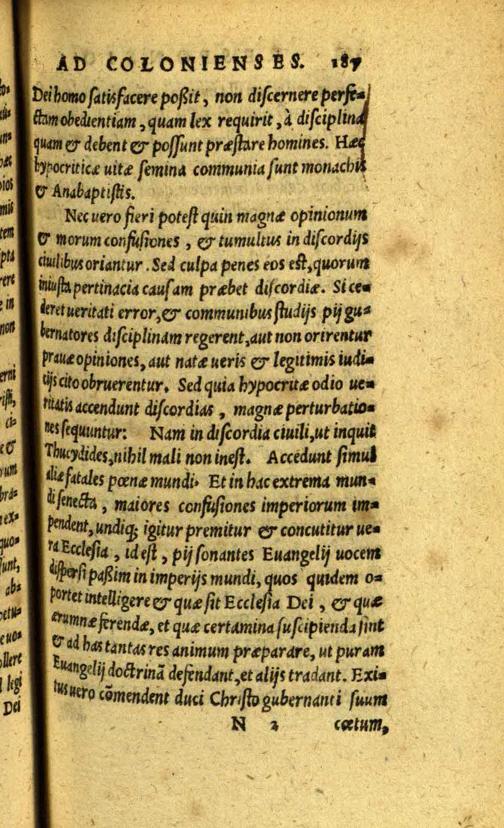 AD COLONIENSES. 187
Dei homo satisfacere poßit, non discernere perfe-
ctam obedientiam, quam lex requirit, à disciplina
quam & debent & possunt præstare homines. Hæc
hypocriticæ uitæ semina communia sunt monachis
& Anabaptistis.
Nec uero fieri potest quin magnæ opinionum
& morum confusiones, & tumultus in discordijs
ciuilibus oriantur. Sed culpa penes eos est, quorum
iniusta pertinacia causam præbet discordiæ. Si ce-
deret ueritati error, & communibus studijs pij gu-
bernatores disciplinam regerent, aut non orirentur
prauæ opiniones, aut natæ ueris & legitimis iudi-
cijs cito obruerentur. Sed quia hypocritæ odio ue-
ritatis accendunt discordias, magnæ perturbatio-
nes sequuntur: Nam in discordia ciuili, ut inquit
Thucydides, nihil mali non inest. Accedunt simul
aliæ fatales pœnæ mundi. Et in hac extrema mun-
di senecta, maiores confusiones imperiorum im-
pendent, undiq; igitur premitur & concutitur ue-
ra Ecclesia, id est, pij sonantes Euangelij uocem
dispersi paßim in imperijs mundi, quos quidem o-
portet intelligere & quæ sit Ecclesia Dei, & quæ
ærumnæ ferendæ, et quæ certamina suscipienda sint
& ad has tantas res animum præparare, ut puram
Euangelij doctrinā defendant, et alijs tradant. Exi-
tus uero cōmendent duci Christo gubernanti suum
N 2 cœtum,